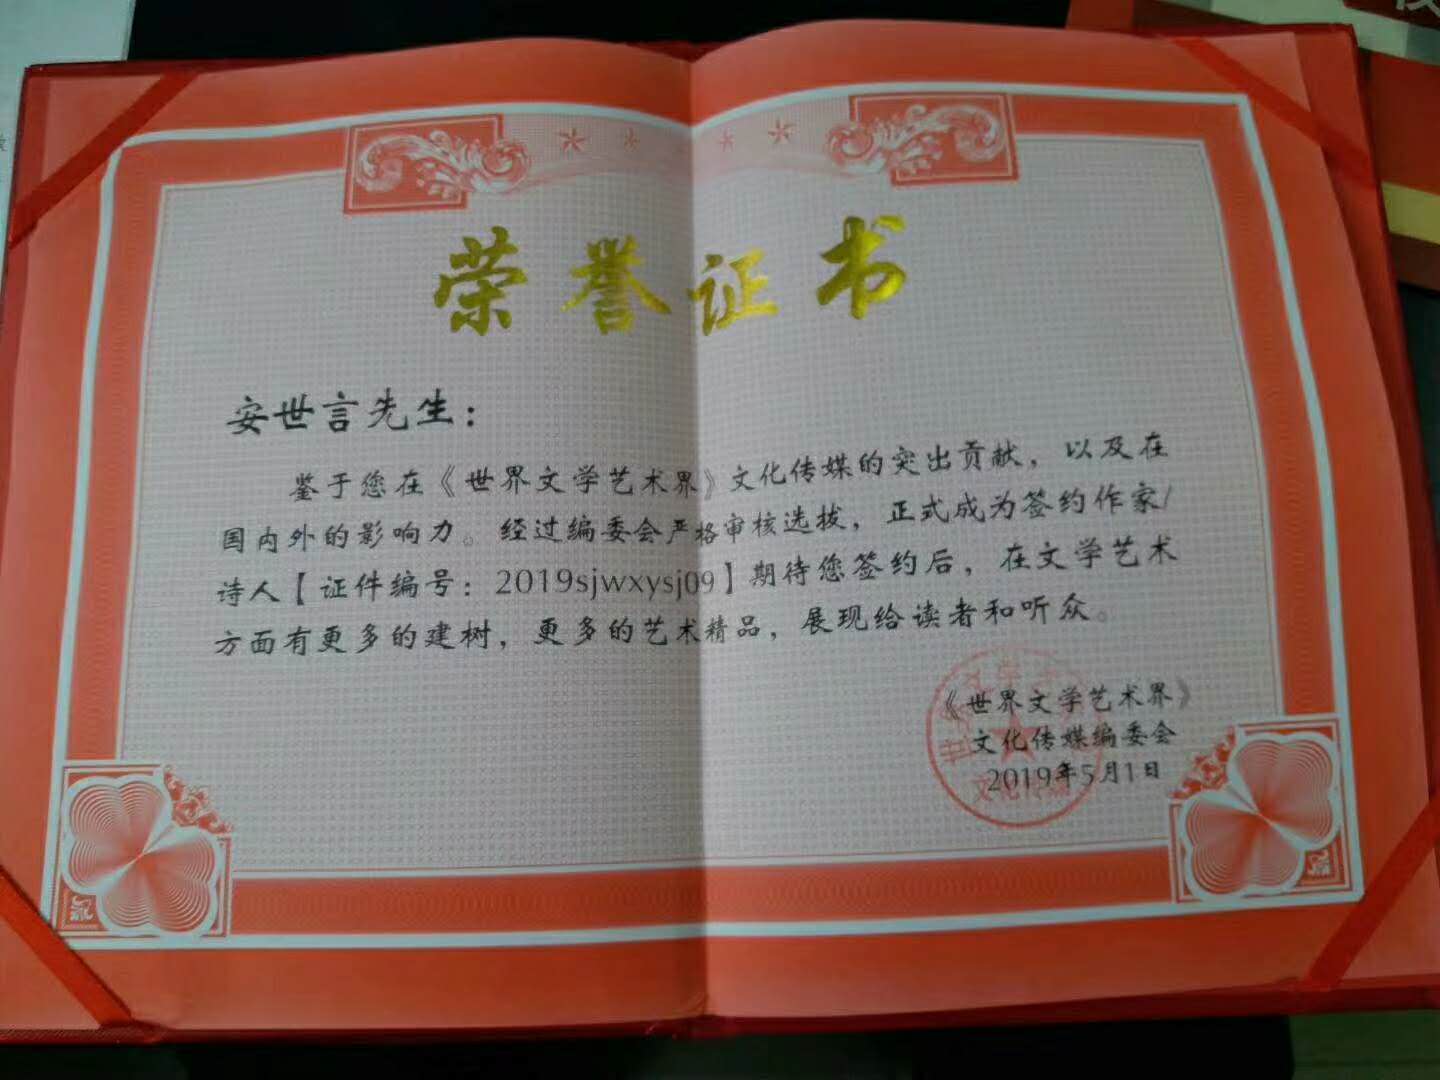 荣誉证书
安世言先生：
鉴于您在《世界文学艺术界》文化传媒的突出贡献，以及在
国内外的影响力。经过编委会严格审核选拔，正式成为签约作家/
诗人【证件编号：2019sjwxysj09】期待您签约后，在文学艺术
方面有更多的建树，更多的艺术精品，展现给读者和听众。
《世界文学艺术界》
文化传媒编委会
2019年5月1日